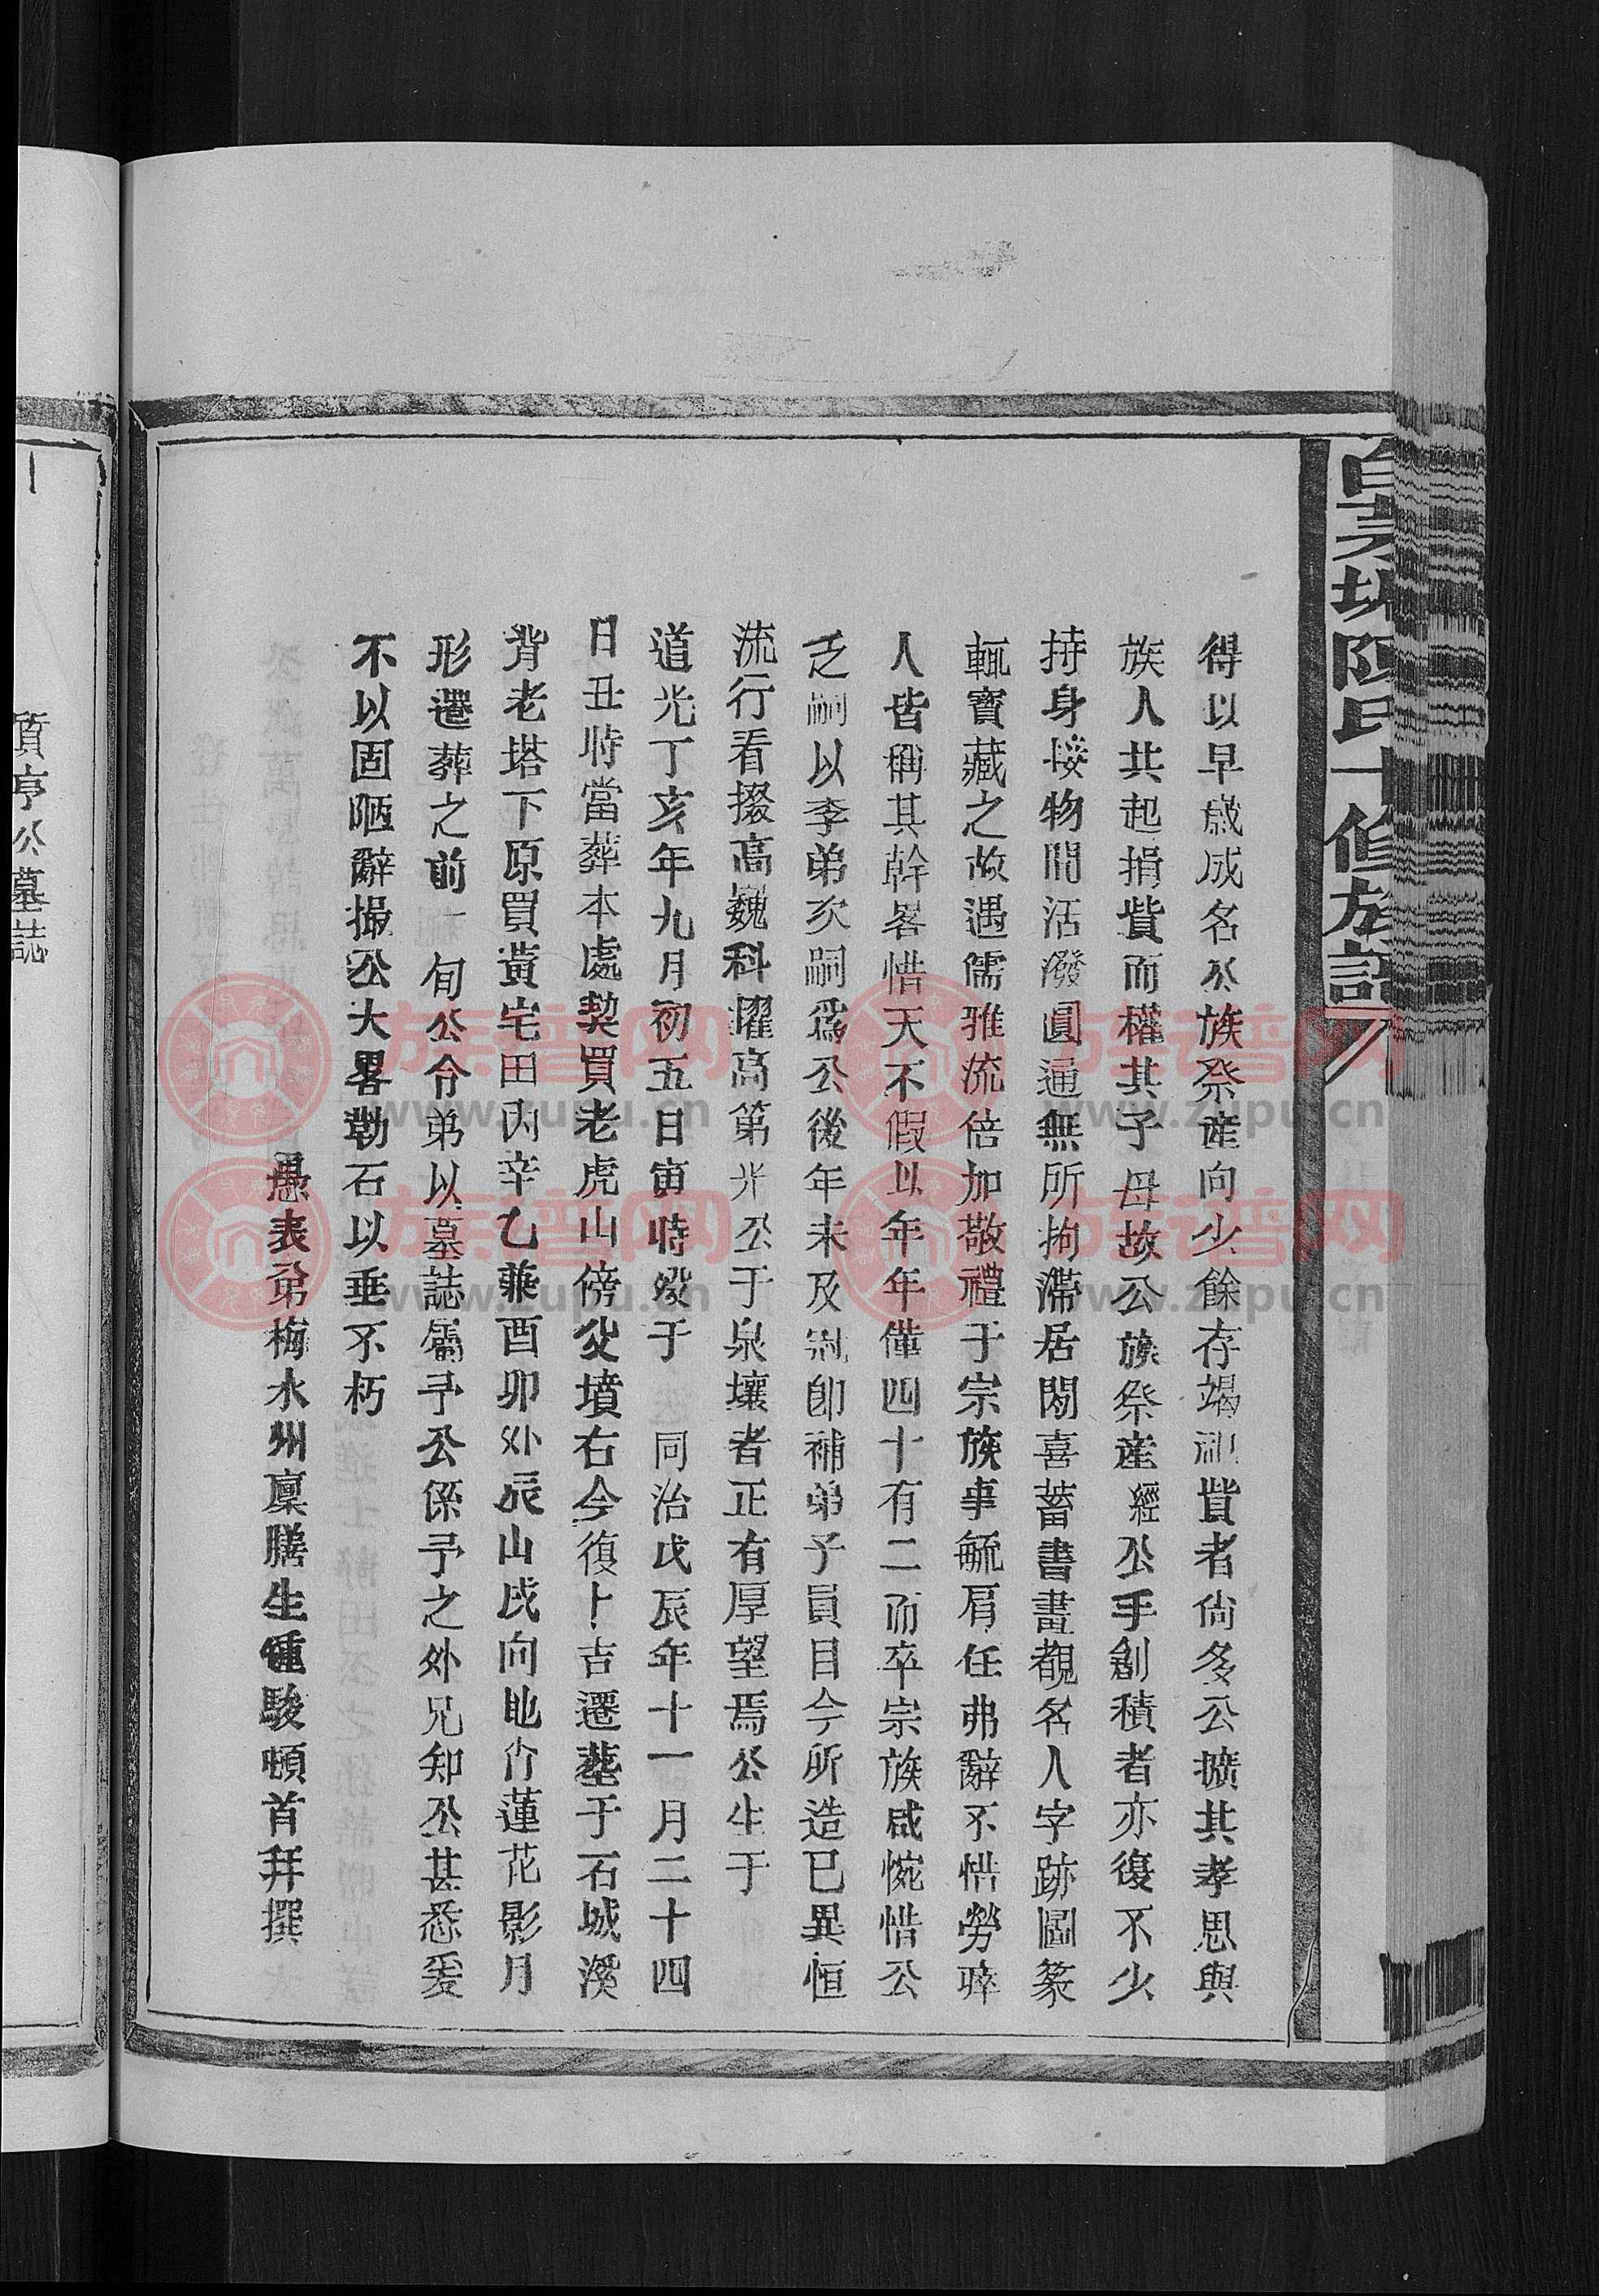 得以早歲成名公族祭産向少餘存竭祀貲者尙多公擴其孝思與
族人共起捐貲而權其子母故公族祭産經公手創積者亦復不少
持身接物間活潑圓通無所拘滯居閒喜蓄書畫覩名人字跡圖篆
輒寶藏之故遇儒雅流倍加敬禮于宗族事毓肩任弗辭不惜勞瘁
人皆稱其幹畧惜天不假以年年僅四十有二而卒宗族咸惋惜公
乏嗣以季弟次嗣爲公後年未及冠卽補弟子員目今所造已異恒
流行看掇高巍科躍高第光公于泉壤者正有厚望焉公生于
道光丁亥年九月初五日寅時歿于 同治戊辰年十一月二十四
日丑時當葬本處契買老虎山傍父墳右今復卜吉遷塟于石城溪
背老塔下原買黃宅田內辛乙兼酉卯外辰山戌向地名蓮花影月
形遷葬之前一旬公令弟以墓誌屬予公係予之外兄知公甚悉爰
不以固陋辭撮公大畧勒石以垂不朽
愚表弟梅水州廩膳生鍾駿頓首拜撰
族譜网
www.zupu.cn
族譜网
www.zupu.cn
族譜网
www.zupu.cn
族譜网
www.zupu.cn
資亨公墓誌